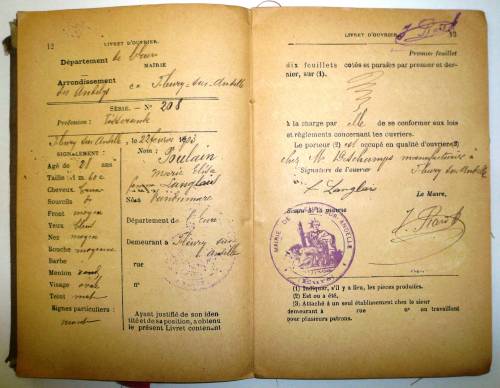 12 LIVRET D'OUVRIER.
Département de l'Eure
MAIRIE
Arrondissement
des Andelys
de Fleury-sur-Andelle
SÉRIE. — N° 208
Profession : Tisserande
Fleury sur Andelle, le 22 février 1903
SIGNALEMENT :
Nom : Poulain
Marie Elisa
femme Langlais
Agé de 28 ans
Taille 1 m. 60 c.
Cheveux
Sourcils
Front moyen
Yeux bleus
Nez moyen
Bouche moyenne
Barbe
Menton rond
Visage ovale
Teint mat
Signes particuliers :
néant
Né à
Département de l'Eure
Demeurant à Fleury sur
Andelle
rue
n°
Ayant justifié de son iden-
tité et de sa position, a obtenu
le présent Livret contenant
LIVRET D'OUVRIER. 13
Premier feuillet
dix feuillets cotés et parafés par premier et der-
nier, sur (1).
à la charge par M de se conformer aux lois
et règlements concernant les ouvriers.
Le porteur (2) est occupé en qualité d'ouvrier (3)
chez Mr Deschamps manufacturier à
Fleury sur Andelle
Signature de l'ouvrier
f. Langlais
Le Maire,
Sceau de la mairie
MAIRIE DE ANDELLE
(EURE)
(1) Indiquer, s'il y a lieu, les pièces produites.
(2) Est ou a été.
(3) Attaché à un seul établissement chez le sieur
demeurant à rue n° en travaillant
pour plusieurs patrons.